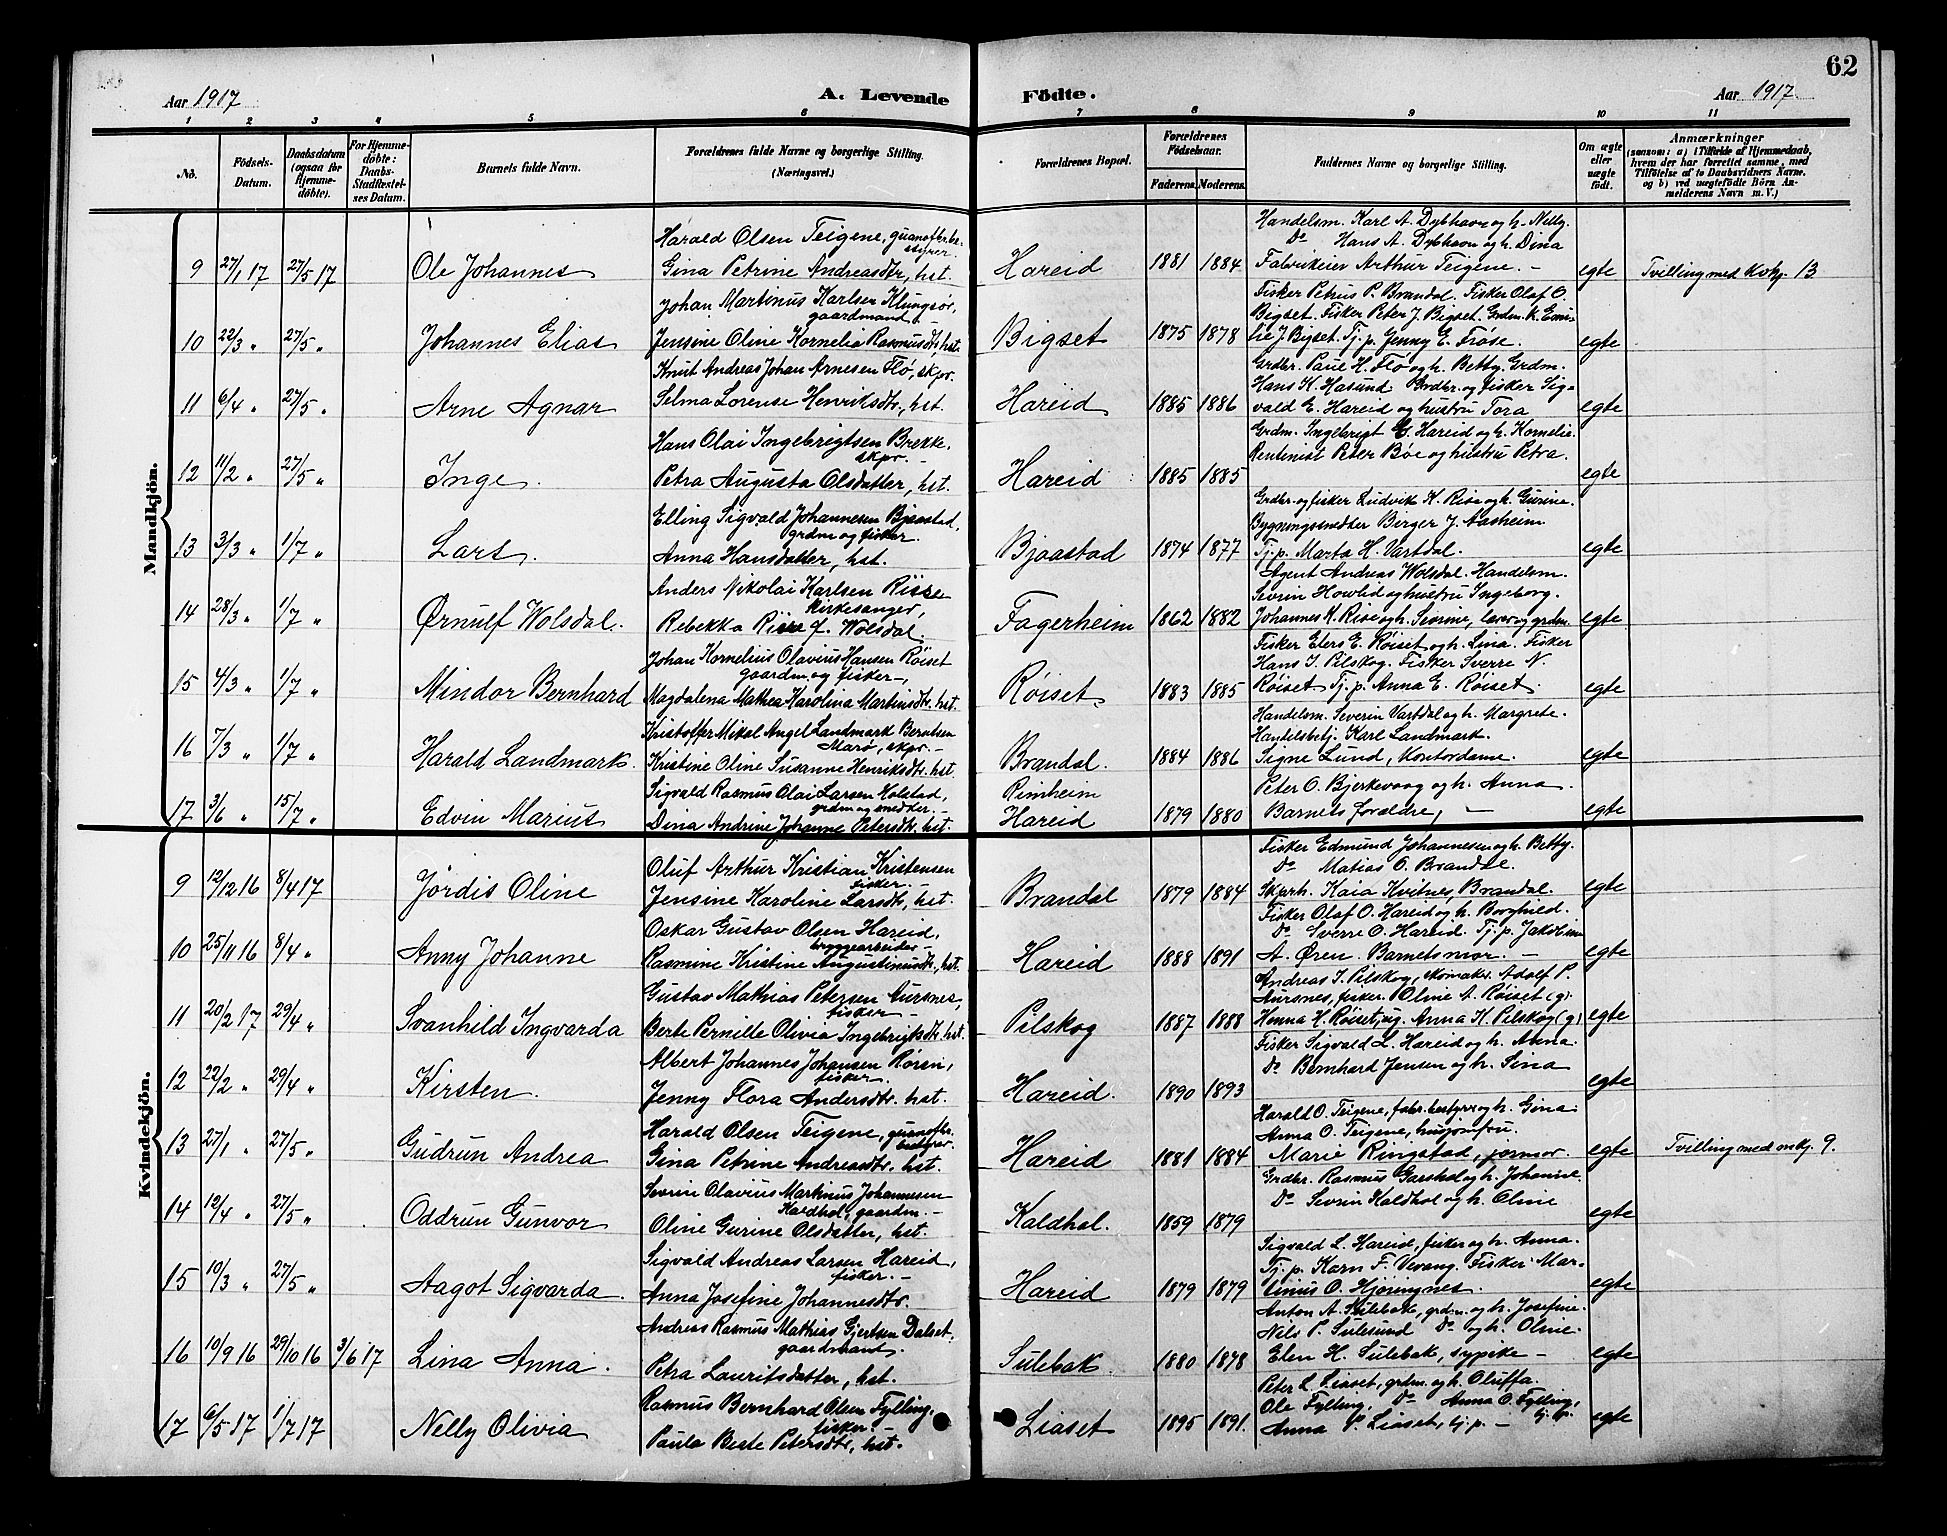 62
Aar 1917
A. Levende Födte.
Aar 1917.
1 2 3 4 5 6 7 8 9 10 11
No.
Födsels-Datum.
Daabsdatum (ogsaa for Hjemmedöbte).
For Hjemmedöbte: Daabs-Stadfæstelses Datum.
Barnets fulde Navn.
Forældrenes fulde Navne og borgerlige Stilling. (Næringsvei.)
Forældrenes Bopæl.
Forældrenes Födselsaar.
Faderens. Moderens.
Faddernes Navne og borgerlige Stilling.
Om ægte eller uægte födt.
Anmærkninger
(saasom: a) i Tilfælde af Hjemmedaab, hvem der har forrettet samme, med Tilföielse af to Daabsvidners Navne, og b) ved uægtefödte Börn Anmelderens Navn m. V.)
Mandkjön.
9 27/1 17 27/5 17 Ole Johannes Harald Olsen Teigene, guanofbr.bestyrer. Gina Petrine Andreasdtr, hst. Hareid 1881 1884 Handelsm. Karl A. Dybhavn og h. Nelly. Do Hans A. Dybhavn og h. Dina Fabrikeier Arthur Teigene. – egte Tvilling med Kvkj. 13
10 22/3 " 27/5 " Johannes Elias Johan Martinus Karlsen Klungsør, gaardmand. Jensine Oline Kornelia Rasmusdtr, hst. Bigset 1875 1878 Fisker Petrus P. Brandal. Fisker Olaf O. Bigset. Fisker Peter J. Bigset. Grdm. K. Emilie J. Bigset. Tj. p. Jenny E. Frøse. egte
11 6/4 " 27/5 " Arne Agnar Knut Andreas Johan Arnesen Flø, skpr. Selma Lorense Henriksdtr, hst. Hareid 1885 1886 Grdbr. Paul H. Flø og h. Betty. Grdm. Hans K. Hasund. Grdbr. og fisker Sigvald E. Hareid og hustru Tora egte
12 11/2 " 27/5 " Inge. Hans Olai Ingebrigtsen Brekke. skpr. – Petra Augusta Olsdatter, hst. Hareid 1885 1885 Grdm. Ingebrigt E. Hareid og h. Kornelie. Rentenist Peter Bøe og hustru Petra. egte
13 3/3 " 1/7 " Lars. Elling Sigvald Johannesen Bjaastad, grdm og fisker. Anna Hansdatter, hst. Bjaastad 1874 1877 Grdbr. og fisker Ludvik K. Rise og h. Gurine. Bygningssnedker Berger J. Aasheim Tj. p. Marta H. Vartdal. egte
14 28/3 " 1/7 " Ørnulf Wolsdal. Anders Nikolai Karlsen Riise kirkesanger, Rebekka Riise f. Wolsdal Fagerheim 1862 1882 Agent Andreas Wolsdal. Handelsm. Severin Howlid og hustru Ingeborg. Johannes K. Rise og h. Severine, lærer og grdm. egte
15 4/3 " 1/7 " Mindor Bernhard Johan Kornelius Olavius Hansen Røiset gaardm. og fisker –, Magdalena Mathea Karolina Martinsdtr. hst. Røiset 1883 1885 Fisker Elers E. Røiset og h. Lina. Fisker Hans I. Pilskog. Fisker Sverre N. Røiset. Tj. p. Anna E. Røiset. egte
16 7/3 " 1/7 " Harald Landmark. Kristoffer Mikal Angel Landmark Berntsen Marø, skpr. – Kristine Oline Susanne Henriksdtr. hst. Brandal. 1884 1886 Handelsm. Severin Vartdal og h. Margrete. Handelsbetj. Karl Landmark. Signe Lund, Kontordame. egte
17 3/6 " 15/7 " Edvin Marius Sigvald Rasmus Olai Larsen Holstad, grdm og snedker. – Dina Andrine Johanne Petersdtr, hst. Rimheim Hareid 1879 1880 Peter O. Bjerkevaag og h. Anna. Barnets forældre, – egte
Kvindekjön.
9 12/12 16 8/4 17 Jördis Oline Oluf Arthur Kristian Kristensen fisker. – Jensine Karoline Larsdtr, hst. Brandal 1879 1884 Fisker Edmund Johannesen og h. Betty. Do Matias O. Brandal. Skprh. Kaia Kvitnes, Brandal. egte
10 25/11 16 8/4 " Anny Johanne Oskar Gustav Olsen Hareid, bryggearbeider – Rasmine Kristine Augustinusdtr, hst. Hareid 1888 1891 Fisker Olaf O. Hareid og h. Borghild. Do Sverre O. Hareid. Tj. p. Jakobine A. Øren. Barnets mor. – egte
11 20/2 17 29/4 " Svanhild Ingvarda Gustav Mathias Petersen Aursnes, fisker – Berte Pernille Olivia Ingebrigtsdtr. hst. Pilskog 1887 1888 Andreas I. Pilskog, skomaker. Adolf P. Aursnes, fisker. Oline A. Røiset (g). Henna H. Røiset, ug. Anna H. Pilskog (g) egte
12 22/2 " 29/4 " Kirsten. Albert Johannes Johansen Røren, fisker. Jenny Flora Andersdtr. hst. Hareid. 1890 1893 Fisker Sigvald L. Hareid og h. Anna. Do Bernhard Jensen og h. Sina egte
13 27/1 " 27/5 " Gudrun Andrea Harald Olsen Teigene, guanofbr. bestyrer. Gina Petrine Andreasdtr, hst. Hareid 1881 1884 Harald O. Teigene, fabr.bestyrer og h. Gina. Anna O. Teigene, husjomfru. Marie Ringstad, jormor. egte Tvilling med mkj. 9.
14 12/4 " 27/5 " Oddrun Gunvor Severin Olavius Martinus Johannesen Kaldhol, gaardm. – Oline Gurine Olsdatter, hst. Kaldhol. 1859 1879 Grdbr. Rasmus Garshol og h. Johanne Do Severin Kaldhol og h. Oline egte
15 10/3 " 27/5 " Aagot Sigvarda. Sigvald Andreas Larsen Hareid, fisker. – Anna Josefine Johannesdtr. Hareid 1879 1879 Sigvald L. Hareid, fisker og h. Anna. Tj. p. Karn F. Vevang. Fisker Martinus O. Hjøringnes. egte
16 10/9 16 29/10 16 3/6 17 Lina Anna. Andreas Rasmus Mathias Gjertsen Dalset, gaardmand. Petra Lauritsdatter, hst. Sulebak. 1880 1878 Anton A. Sulebak, grdm. og h. Josefine. Nils P. Sulesund Do og h. Oline. Elen H. Sulebak, sypike – egte
17 6/5 17 1/7 17 Nelly Olivia Rasmus Bernhard Olsen Fylling, fisker. Paula Berte Petersdtr, hst. Liaset 1895 1891. Peter L. Liaset, grdm. og h. Oluffa. Ole Fylling, Do Anna O. Fylling, tj. p. Anna P. Liaset, tj. p. – egte